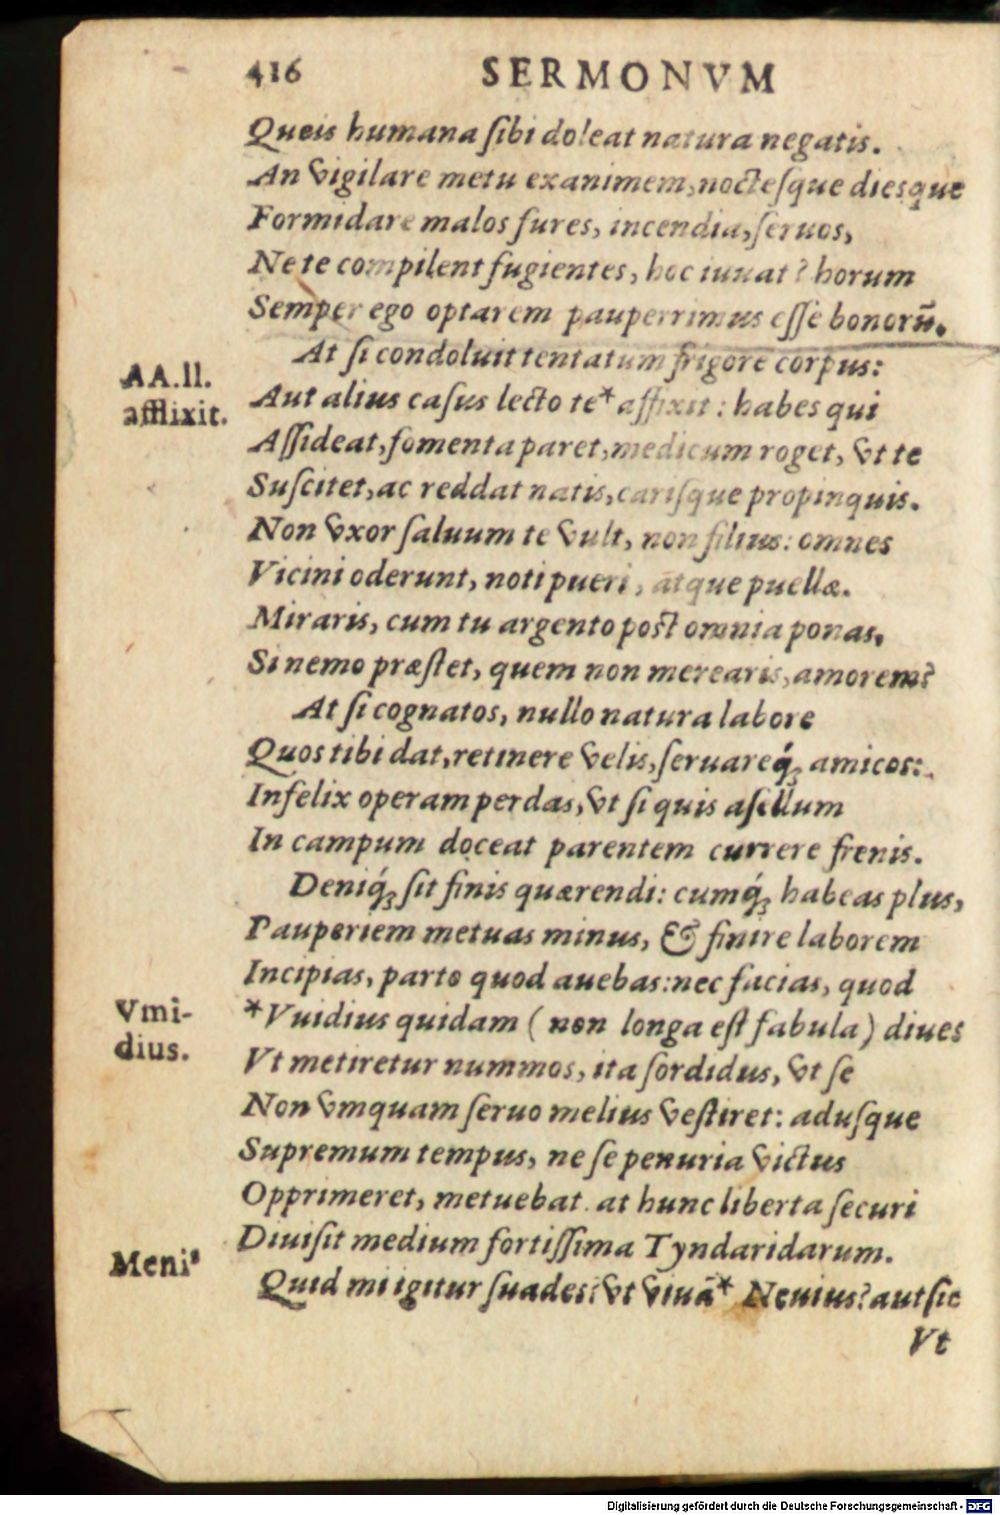 416 SERMONVM
Queis humana ſibi doleat natura negatis.
An vigilare metu exanimem, nocteſque dieſque
Formidare malos fures, incendia, ſeruos,
Ne te compilent fugientes, hoc iuuat? horum
Semper ego optarem pauperrimus eſſe bonorū.
At ſi condoluit tentatum frigore corpus:
AA.ll.
afflixit.
Aut alius caſus lecto te* affixit: habes qui
Aſſideat, fomenta paret, medicum roget, vt te
Suſcitet, ac reddat natis, cariſque propinquis.
Non vxor ſaluum te vult, non filius: omnes
Vicini oderunt, noti pueri, atque puellæ.
Miraris, cum tu argento poſt omnia ponas,
Si nemo præſtet, quem non merearis, amorem?
At ſi cognatos, nullo natura labore
Quos tibi dat, retinere velis, ſeruareq́ꝫ amicos:
Infelix operam perdas, vt ſi quis aſellum
In campum doceat parentem currere frenis.
Deniq́ꝫ ſit finis quærendi: cumq́ꝫ habeas plus,
Pauperiem metuas minus, & finire laborem
Incipias, parto quod auebas: nec facias, quod
Vmi-
dius.
*Vuidius quidam (non longa eſt fabula) diues
Vt metiretur nummos, ita ſordidus, vt ſe
Non vmquam ſeruo melius veſtiret: aduſque
Supremum tempus, ne ſe penuria victus
Opprimeret, metuebat. at hunc liberta ſecuri
Diuiſit medium fortiſſima Tyndaridarum.
Meniꝰ
Quid mi igitur ſuades? vt viuā* Neuius? aut ſic
Vt
Digitalisierung gefördert durch die Deutsche Forschungsgemeinschaft - DFG